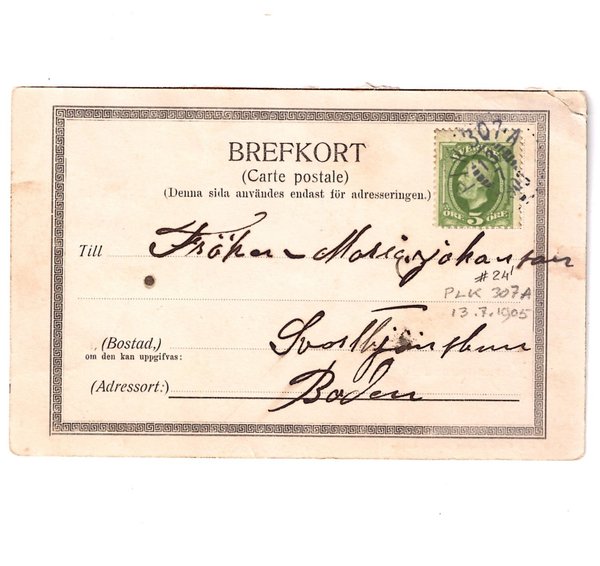 BREFKORT
(Carte postale)
(Denna sida användes endast för adresseringen.)
307 A
SVERIGE
ÖRE 5 ÖRE
Till Fröken Maria Johansson
#24
PLK 307A
13.7.1905
(Bostad,)
om den kan uppgifvas:
(Adressort:) Boden